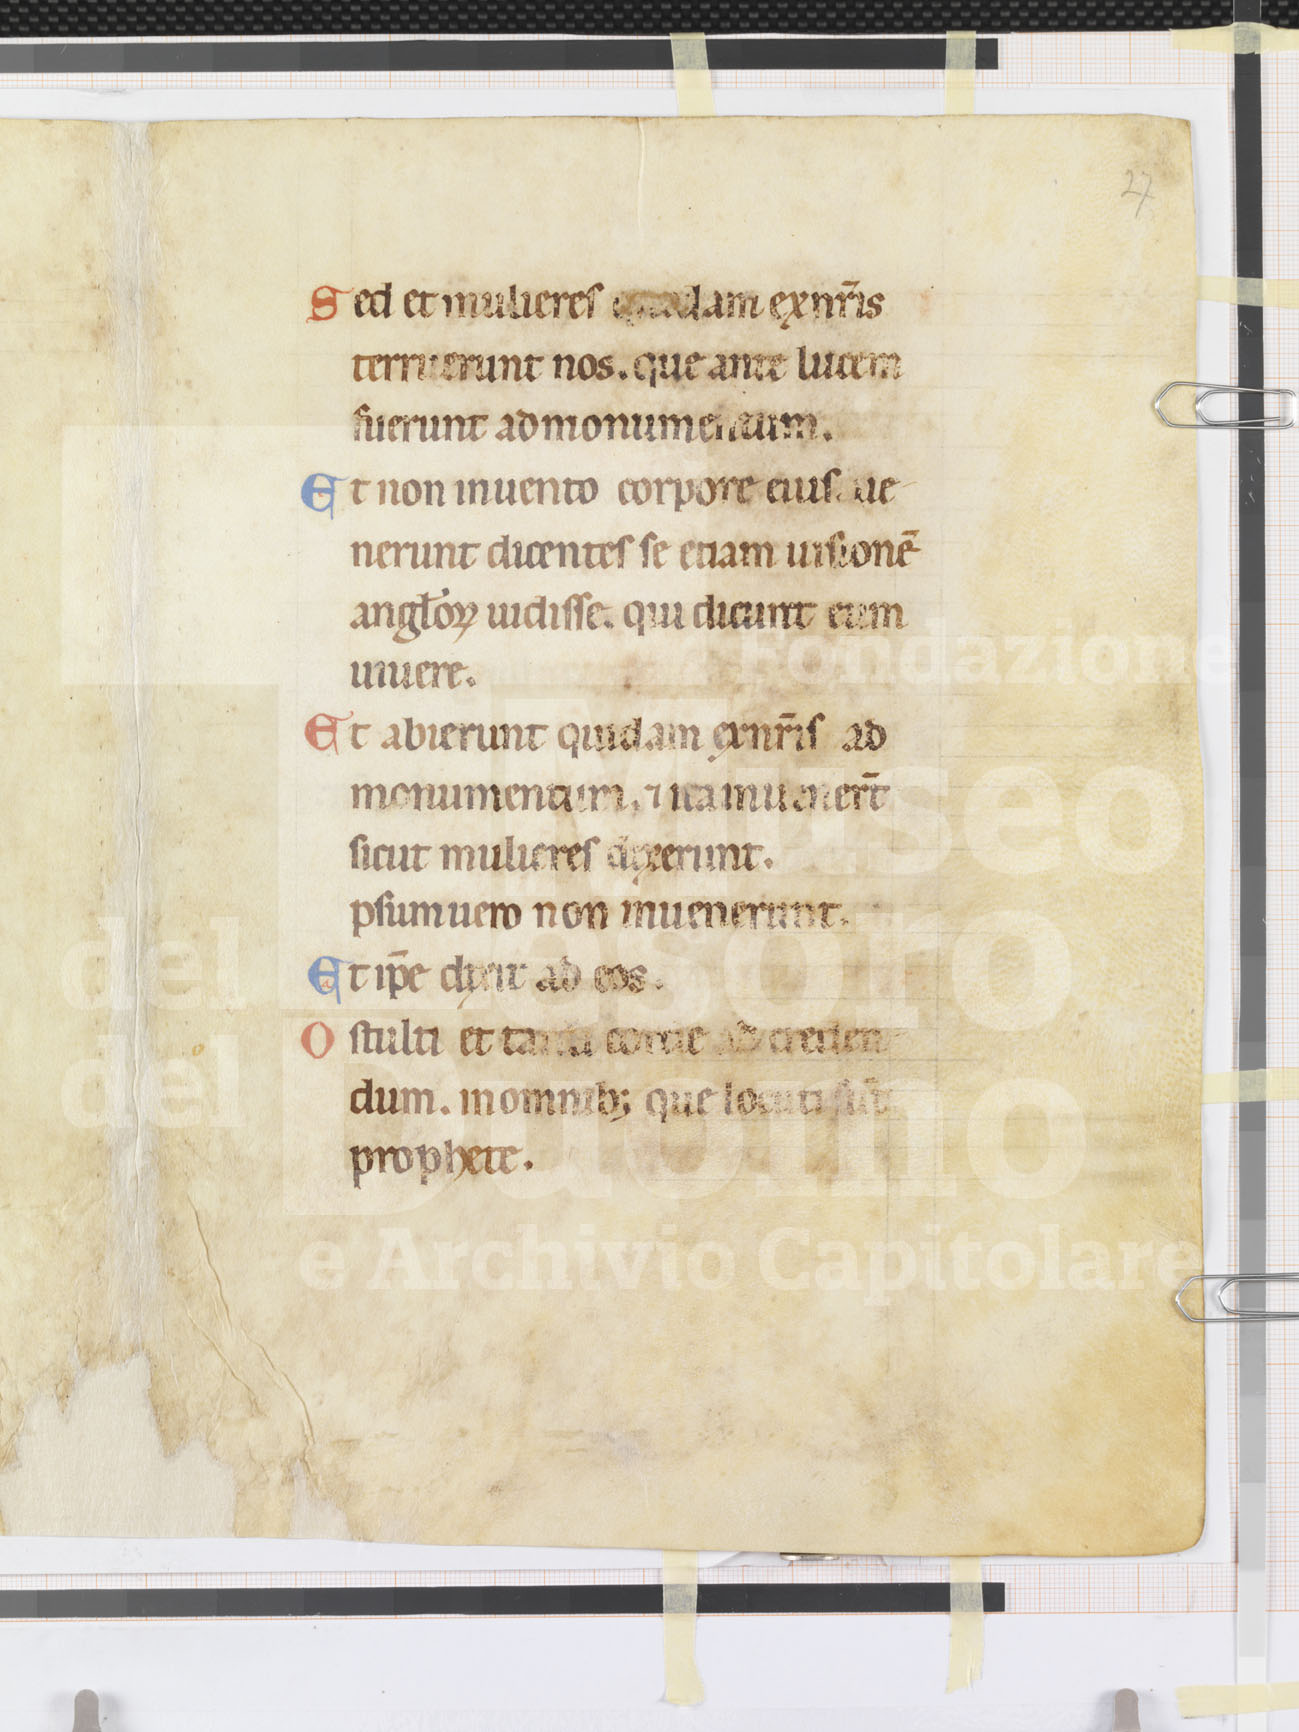 27
Sed et mulieres quedam ex nr̄is
terruerunt nos. que ante lucem
fuerunt ad monumentum.
Et non inuento corpore eius. ue
nerunt dicentes se etiam uisionē
anglo̗ꝝ uidisse. qui dicunt eum
uiuere.
Et abierunt quidam ex nr̄is ad
monumentum. ⁊ ita inuenerūt
sicut mulieres dixerunt.
psum uero non inuenerunt.
Et ip̄e dixit ad eos.
O stulti et tardi corde ad creden
dum. in omnib; que locuti sūt
prophete.
Fondazione
Museo
del Tesoro
del Duomo
e Archivio Capitolare